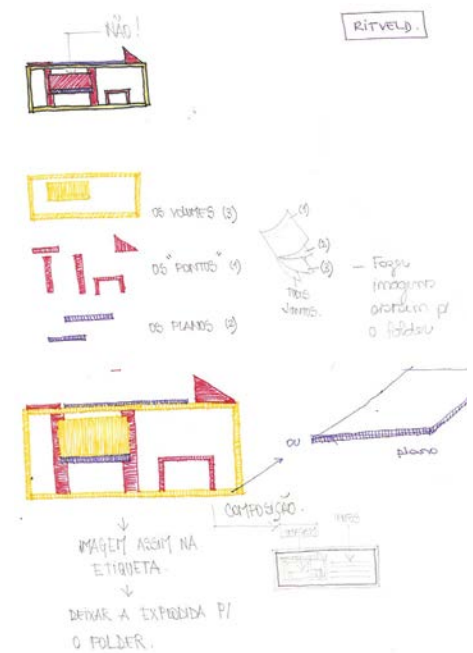 NÃO!
RITVELD.
OS VOLUMES (3)
OS "PONTOS" (1)
OS PLANOS (2)
(1)
(2)
(3)
— Fazer
imagens
assim p/
o folder
OU
plano
COMPOSIÇÃO.
IMAGEM ASSIM NA
ETIQUETA.
DEIXAR A EXPLODIDA P/
O FOLDER.